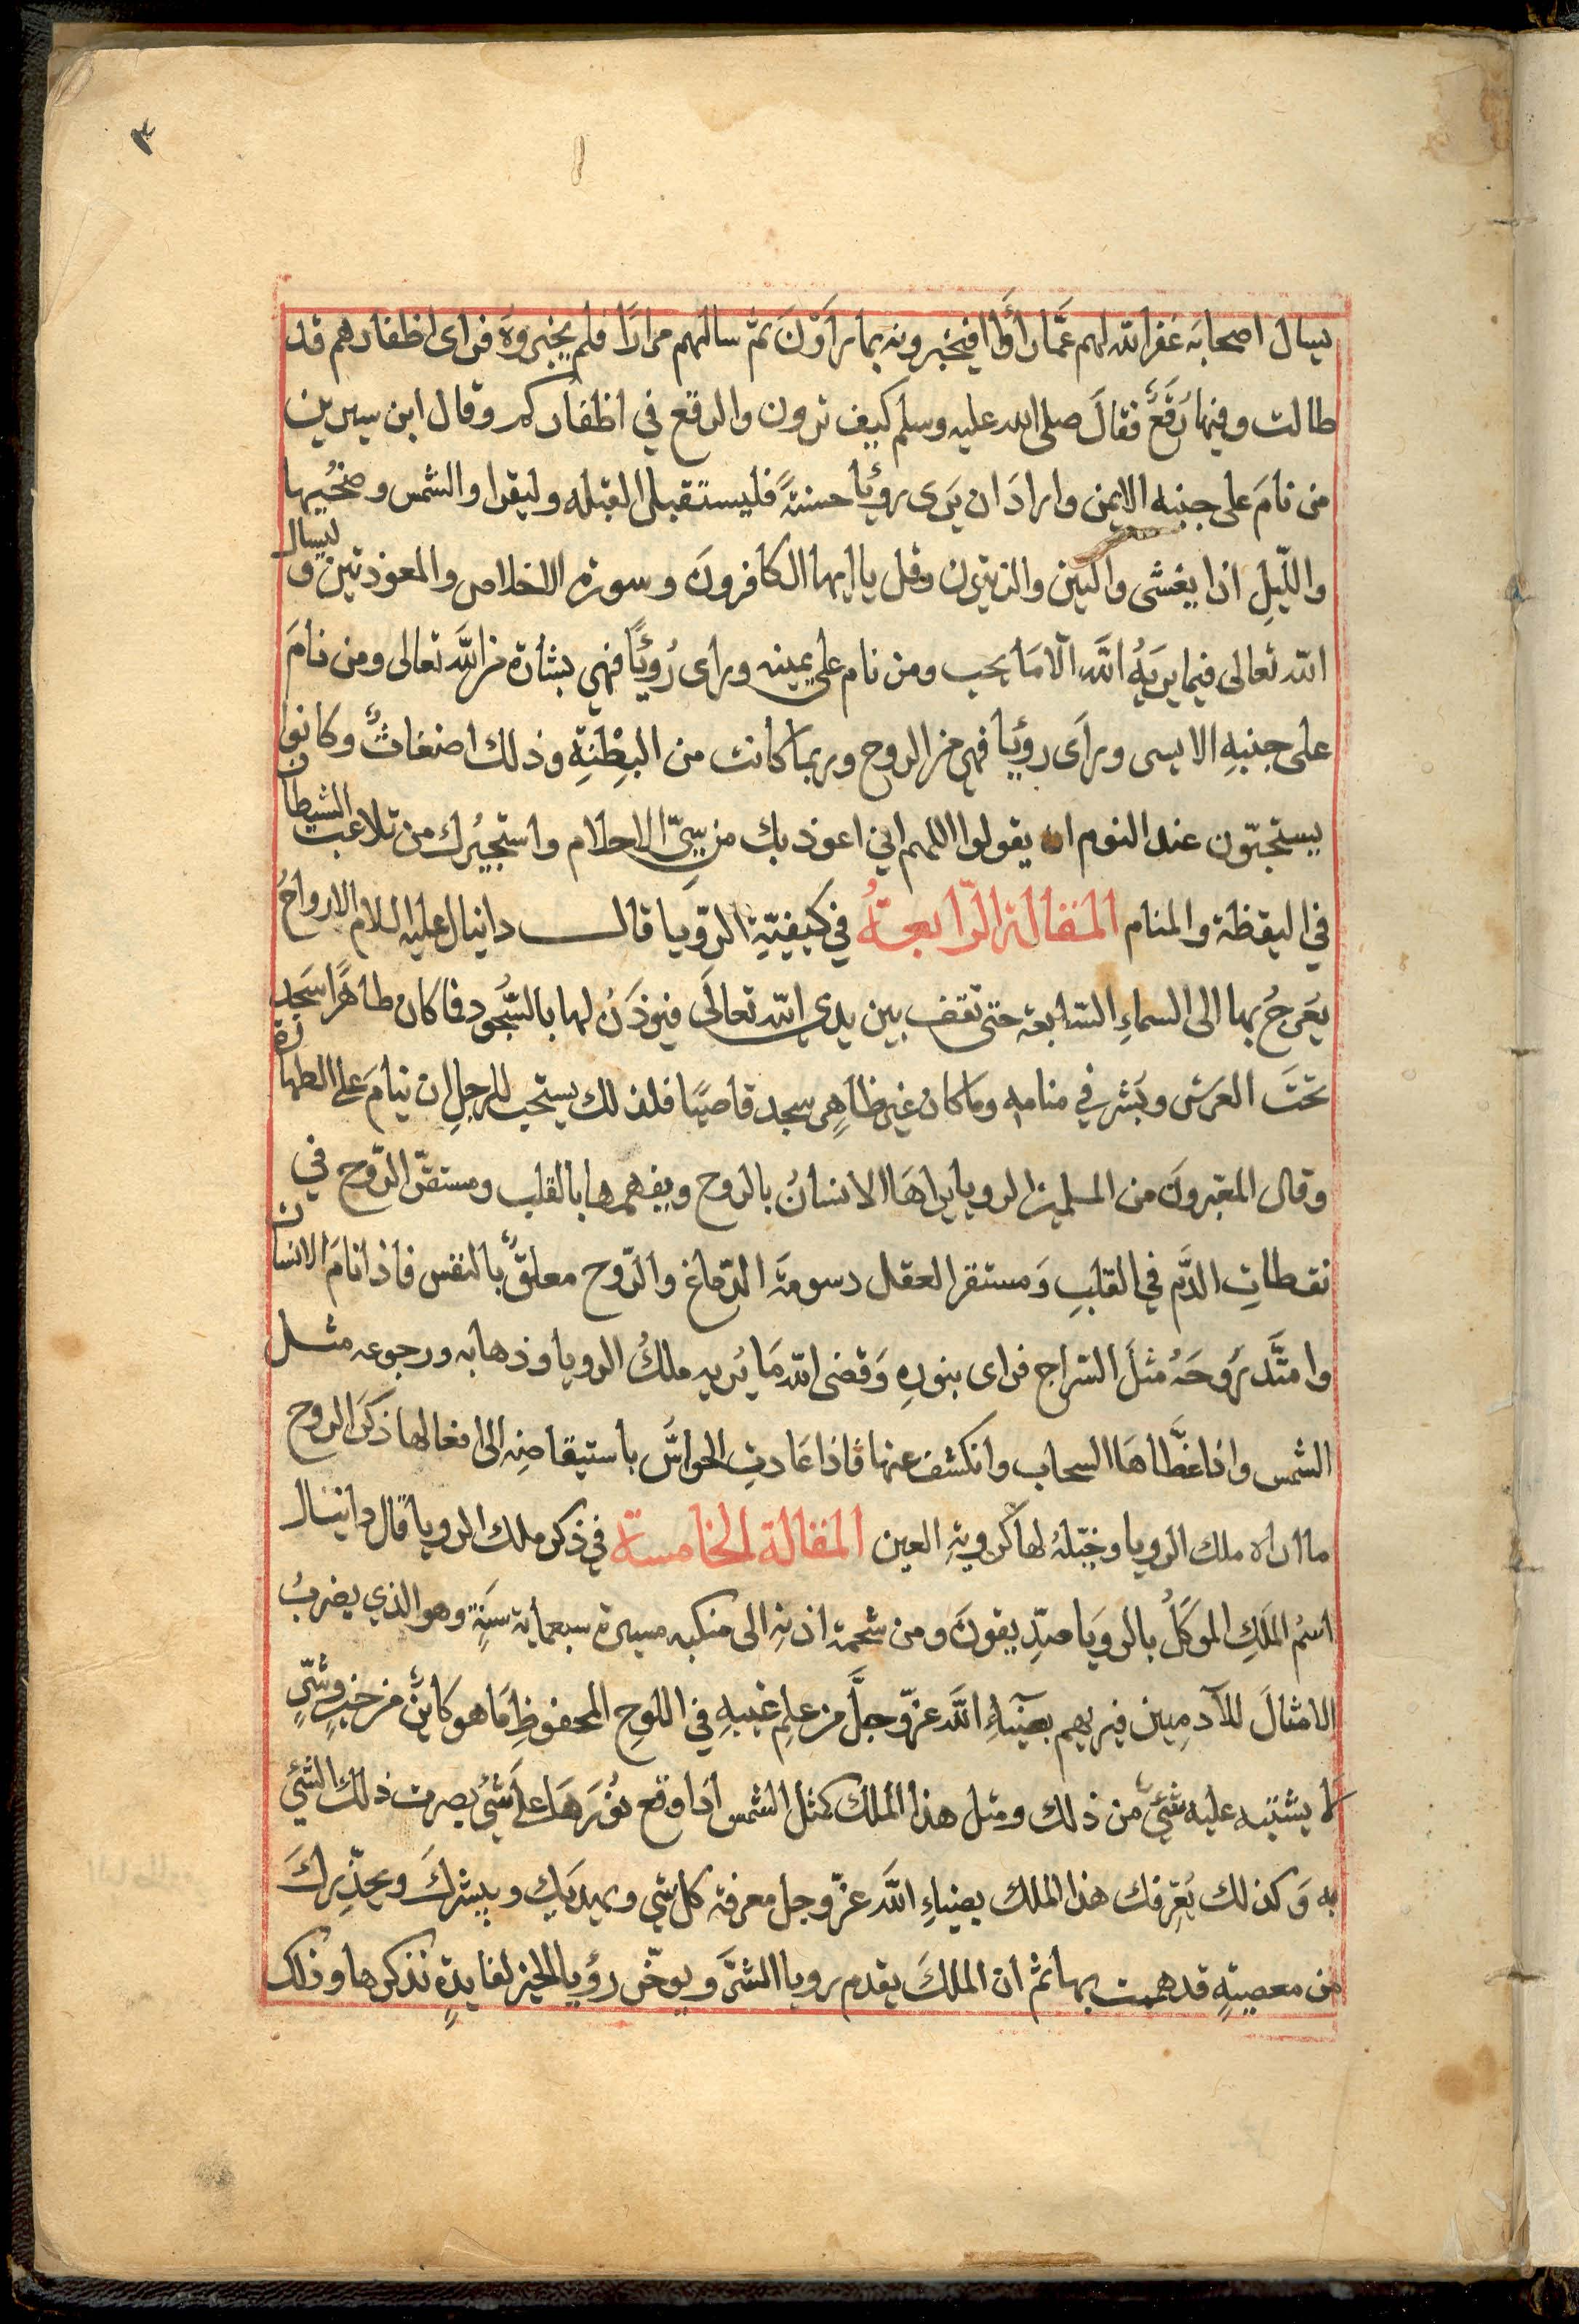 ٣
يسال اصحابه غفر الله لهم عَمَّا رأَوْا فيخبرونه بما يراَوْنَ ثم سالهم مرارًا فلم يخبروه فراى اظفارهم قد
طالت وفيها رُقَعٌ فقالَ صلى الله عليه وسلم كيف ترون والرقع في اظفاركم وقال ابن سيرين
من نامَ على جنبه الايمن وارادَ ان يَرَى رؤيا حسنةً فليستقبل القبله وليقرا والشمس وضحُيها
والليلِ اذا يغشى والتين والزيتون وقل يا ايها الكافرونَ وسورة الاخلاص والمعوذتين وليسال
الله تعالى فيما يريهُ اللهُ الا مَا يحب ومن نام على يمينه وراى رُؤيًا فهي بشارة من اللَّه تعالى ومن نامَ
على جنبهِ الايسر وراَى رؤيا فهي من الروح وربما كانت من البِطْنَةِ وذلك اضغاثٌ وكانوا
يستحبّون عند النوم ان يقولوا اللهم اني اعوذ بك من سيّ الاحلام واستجيُرك من تلاعب الشيطان
في اليقظة والمنام المقالة الرّابعةُ في كيفيّةِ الروّيا قال دانيال عليه السلام الارواحُ
يُعرجُ بها الى السماءِ السّابعة حتى تقف بين يدي الله تعالَى فيوذَنُ لها بالسُّجود فما كان طاهرًا سَجَد
تحتَ العرَش وبَشر في منامه وما كان غير طاهرٍ سجد قاصيًا فلذلك يستحب للرجلِ ان ينامَ على الطهارة
وقال المعبرونَ من المسلمين الرويا يراهَا الانسانُ بالروح ويفهمها بالقلب ومستقرّ الرّوح في
نقطاتِ الدَّم في القلبِ وَمستقر العقل دسومة الدّماغ والرّوح معلقٌ بالنفس فاذا نامَ الانسان
وامتَّد رَوحَهُ مثلَ السّراج فراى بنورهِ وَقضى الله مَا يُريه ملكُ الرويا وذهابه ورجوعه مثل
الشمس واذا غطَّاهَا السحاب وانكشف عنها فاذا عَادتِ الحواسَّ باستيقاضِه الى افعالها ذكرَ الروح
ما اراه ملك الرويا وخيّلهُ لها كرويةِ العين المقالة الخامسة في ذكر ملك الرويا قال دانيال
اسمُ المَلَكِ الموكَلُ بالروَيا صِدِّيقونَ ومن شحمة اذنهِ الى منكبه مسيرة سبعماية سنَةٍ وهو الذي يضربُ
الامثالَ للآدمِيين فيريهم بضيَآءِ اللَّه عزّ وجلَّ من علمِ غيبهِ في اللوحِ المحفوظِ مَا هو كاينٌ من خيرٍ وشّرٍ
لا يشتبه عليه شيٌ من ذلك ومثل هذا الملك كمثل الشمس اذا وقع نُورَهَا على شيُ بصرت ذلك الشئ
به وَكذلك يُعرّفك هذا الملك بضياءِ اللَّه عزّ وجل معرفة كل شي ويهديك ويبشركَ ويحذّركَ
من معصيةٍ قد هممت بها ثم ان الملكَ يقدم رويا الشرَّ ويوخّر رؤيا الخير لفايدةٍ نذكرها وذلك